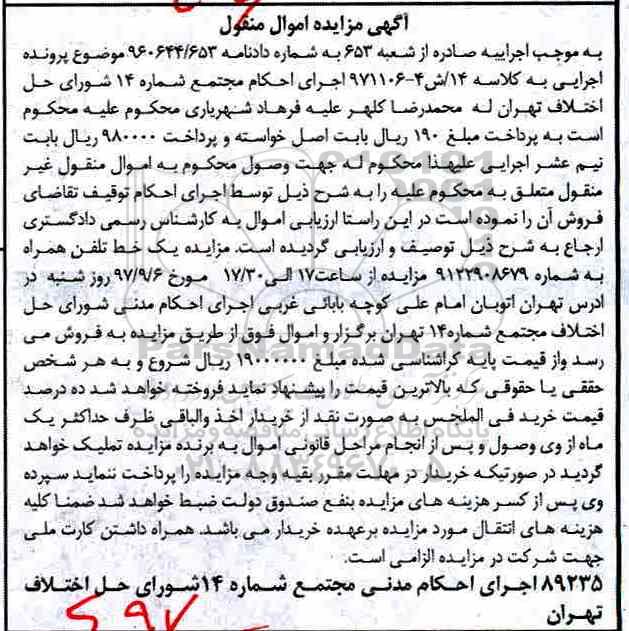 آگهی مزایده اموال منقول
به موجب اجراییه صادره از شعبه ۶۵۳ به شماره دادنامه ۹۶۰۶۴۴/۶۵۳ موضوع پرونده
اجرایی به کلاسه ۱۴/ش۴-۹۷۱۱۰۶ اجرای احکام مجتمع شماره ۱۴ شورای حل
اختلاف تهران له محمدرضا کلهر علیه فرهاد شهریاری محکوم علیه محکوم
است به پرداخت مبلغ ۱۹۰ ریال بابت اصل خواسته و پرداخت ۹۸۰۰۰۰ ریال بابت
نیم عشر اجرایی علیهذا محکوم له جهت وصول محکوم به اموال منقول غیر
منقول متعلق به محکوم علیه را به شرح ذیل توسط اجرای احکام توقیف تقاضای
فروش آن را نموده است در این راستا ارزیابی اموال به کارشناس رسمی دادگستری
ارجاع به شرح ذیل توصیف و ارزیابی گردیده است. مزایده یک خط تلفن همراه
به شماره ۹۱۲۲۹۰۸۶۷۹ مزایده از ساعت ۱۷ الی ۱۷/۳۰ مورخ ۹۷/۹/۶ روز شنبه در
ادرس تهران اتوبان امام علی کوچه بابائی غربی اجرای احکام مدنی شورای حل
اختلاف مجتمع شماره۱۴ تهران برگزار و اموال فوق از طریق مزایده به فروش می
رسد واز قیمت پایه کراشناسی شده مبلغ ۱۹۰۰۰۰۰۰ ریال شروع و به هر شخص
حققی یا حقوقی که بالاترین قیمت را پیشنهاد نماید فروخته خواهد شد ده درصد
قیمت خرید فی الملجس به صورت نقد از خریدار اخذ والباقی ظرف حداکثر یک
ماه از وی وصول و پس از انجام مراحل قانونی اموال به برنده مزایده تملیک خواهد
گردید در صورتیکه خریدار در مهلت مقرر بقیه وجه مزایده را پرداخت ننماید سپرده
وی پس از کسر هزینه های مزایده بنفع صندوق دولت ضبط خواهد شد ضمنا کلیه
هزینه های انتقال مورد مزایده برعهده خریدار می باشد. همراه داشتن کارت ملی
جهت شرکت در مزایده الزامی است.
۸۹۲۳۵ اجرای احکام مدنی مجتمع شماره ۱۴ شورای حل اختلاف
تهران